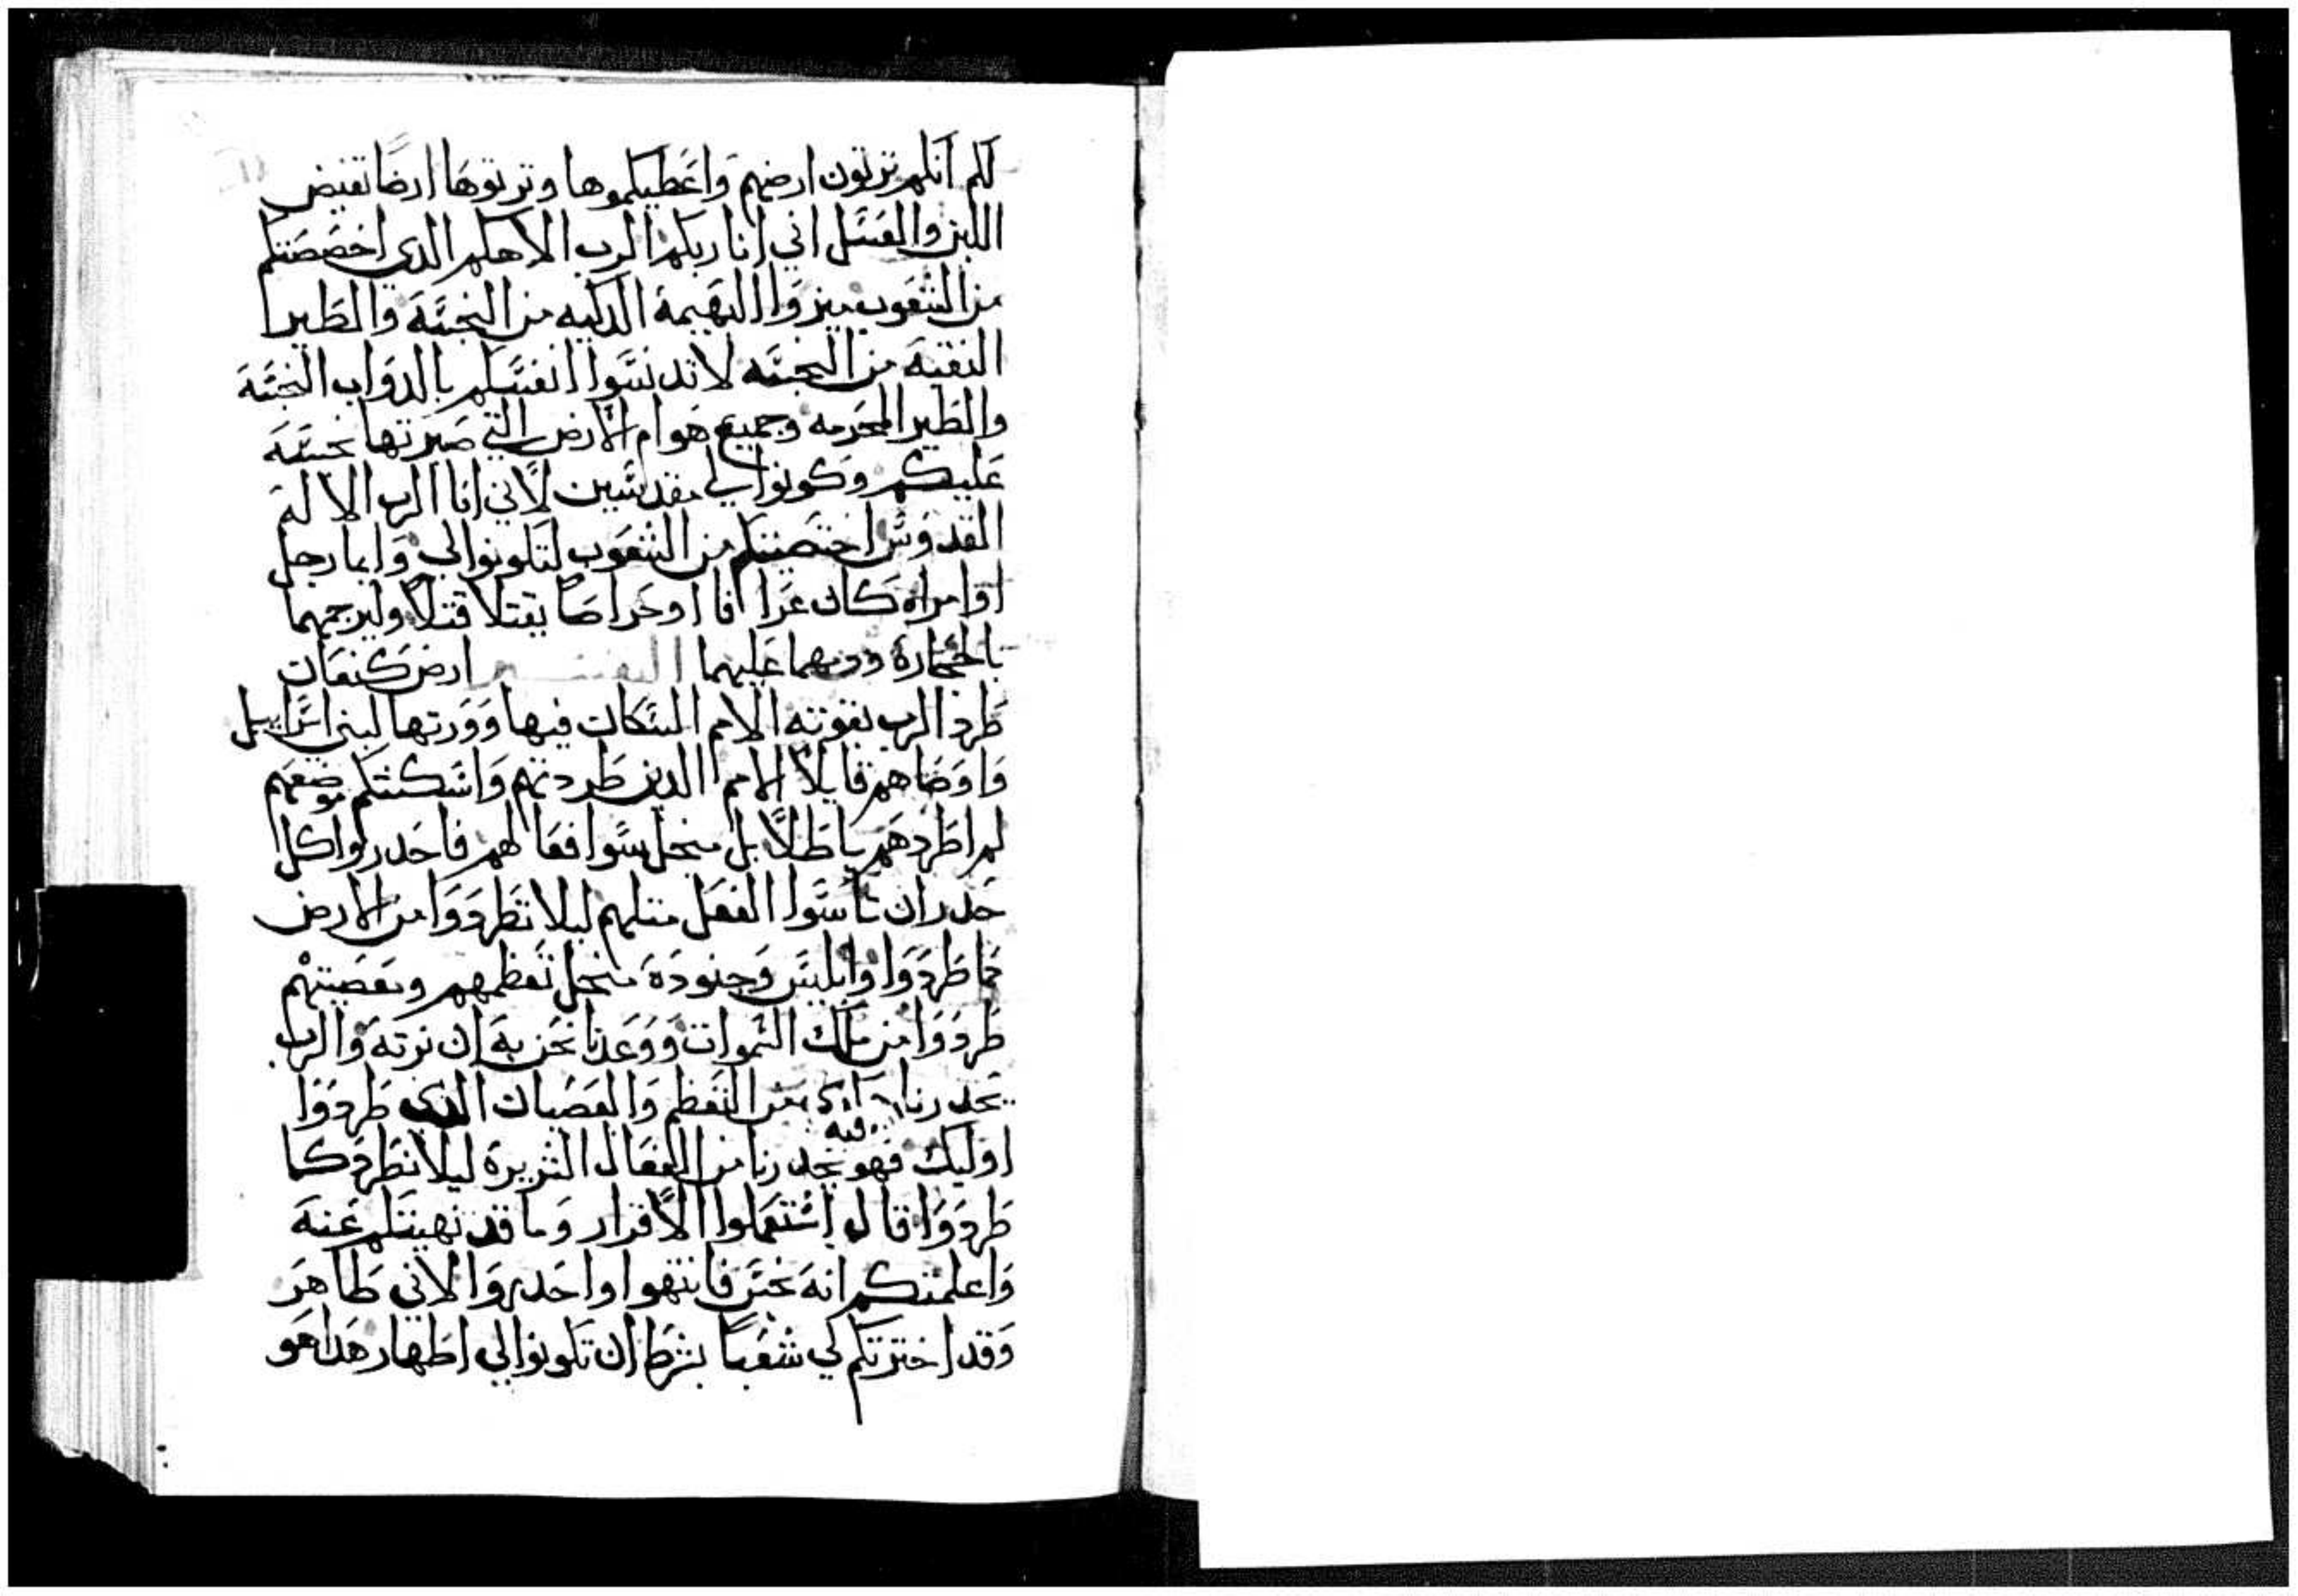 لكم انكم ترتون ارضهم واعطيكموها وترتوها ارضًا تفيض
اللبن والعسل اني انا ربكم الرب الاهكم الدي اخصصتكم
من الشعوب ميزوا البهيمة الدكيه من النجسَه والطير
النقيه من النجسَه لا تدنسَوا انفسَكم بالدواب النجسَه
والطير المحرمه وجميع هوام الارض التي صيرتها نجسَه
عليكم وكونوا لي مقدسَين لاني انا الرب الاله
القدوسَ اختصيتكم من الشعوب لتكونوا لي وايما رجل
او امراه كان عرافا او حراصا يقتلا قتلاً وليرجمهما
بالحجارة ودمهما عليهما التفسير ارض كنعان
طرد الرب بقوته الامم السَكان فيها وورتها لبني اسَراييل
واوصاهم قايلاً الامم الدين طردتهم واسَكنتكم موضعهم
لم اطردهم باطلاً بل منجل سَوا فعالهم فاحدروا كل
حدر ان تاسَوا الفعل متلهم ليلا تطردوا من الارض
كما طردوا وابليسَ وجنوده منجل تعظمهم ومعصيتهم
طردوا من ملك السَموات ووعدنا نحن به ان نرته والرب
يحدرنا من التعظم والعصيان الدي طردوا
فيه
اوليك فهو يحدرنا من الفعال الشريرة ليلا نطرد كما
طردوا قال استعملوا الافراز وما قد نهيتكم عنه
واعلمتكم انه نجسَ فانتهوا واحدروا لاني طاهر
وقد اخترتكم لي شعبًا بشرط ان تكونوا لي اطهار هدا هو